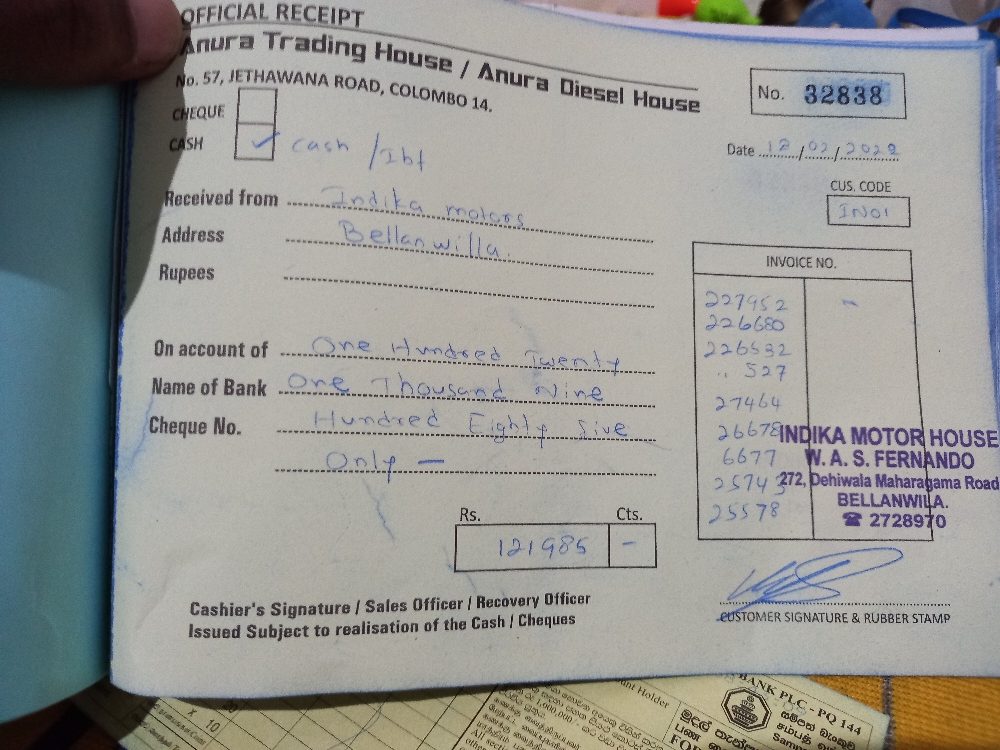 OFFICIAL RECEIPT
Anura Trading House / Anura Diesel House
No. 57, JETHAWANA ROAD, COLOMBO 14.
No. 32838
CHEQUE
CASH ✓ cash / Ibt
Date 12/02/2022
CUS. CODE
IN01
Received from Indika motors
Address Bellanwilla.
Rupees
On account of One Hundred Twenty
Name of Bank One Thousand Nine
Cheque No. Hundred Eighty five
Only —
INVOICE NO.
227952 -
226680
226532
.. 527
27464
26678
6677
25743
25578
INDIKA MOTOR HOUSE
W. A. S. FERNANDO
272, Dehiwala Maharagama Road
BELLANWILA.
☎ 2728970
Rs. Cts.
121985 -
Cashier's Signature / Sales Officer / Recovery Officer
Issued Subject to realisation of the Cash / Cheques
CUSTOMER SIGNATURE & RUBBER STAMP
BANK PLC - PQ 144
Account Holder
x 10
20